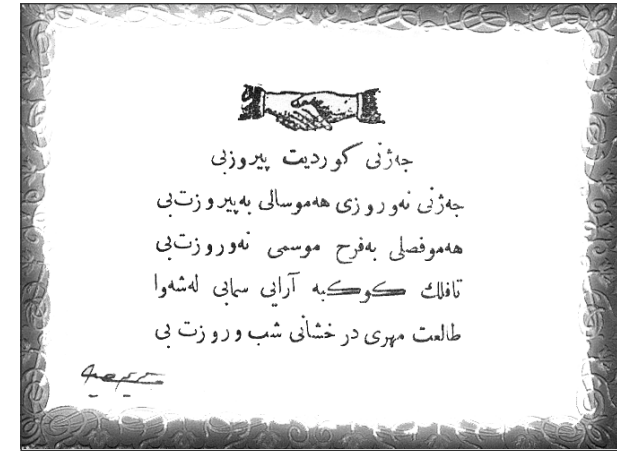 جەژنی کوردیت پیروزبی
جەژنی نەوروزی هەموسالی بەپیروزت‌بی
هەموفصلی بەفرح موسمی نەوروزت‌بی
تافلك کوکبه آرایی سمایی لەشەوا
طالعت مهری درخشانی شب وروزت بی